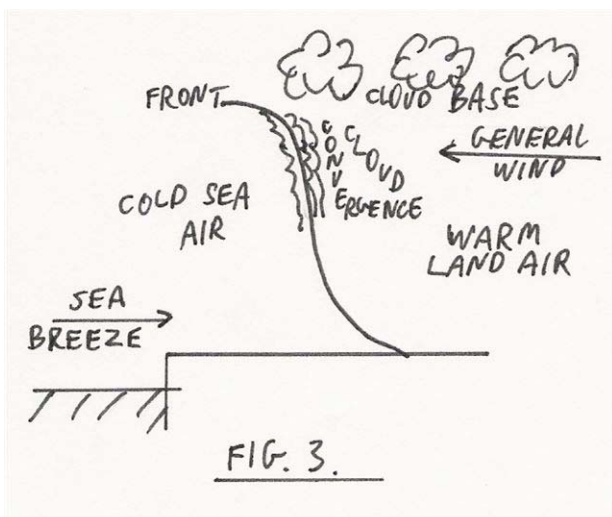 FRONT
CLOUD BASE
CONVERGENCE
CLOUD
GENERAL
WIND
COLD SEA
AIR
WARM
LAND AIR
SEA
BREEZE
FIG. 3.